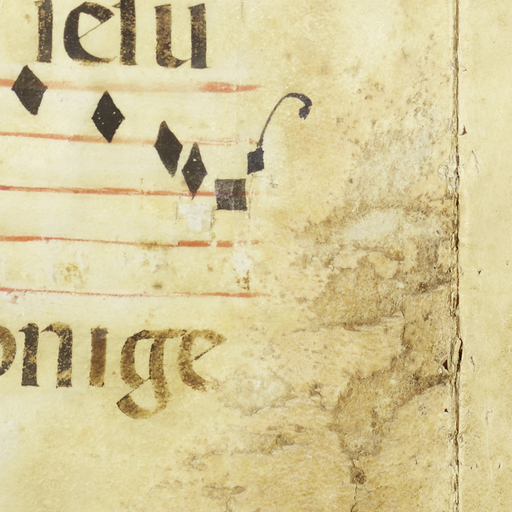 ietu
onige